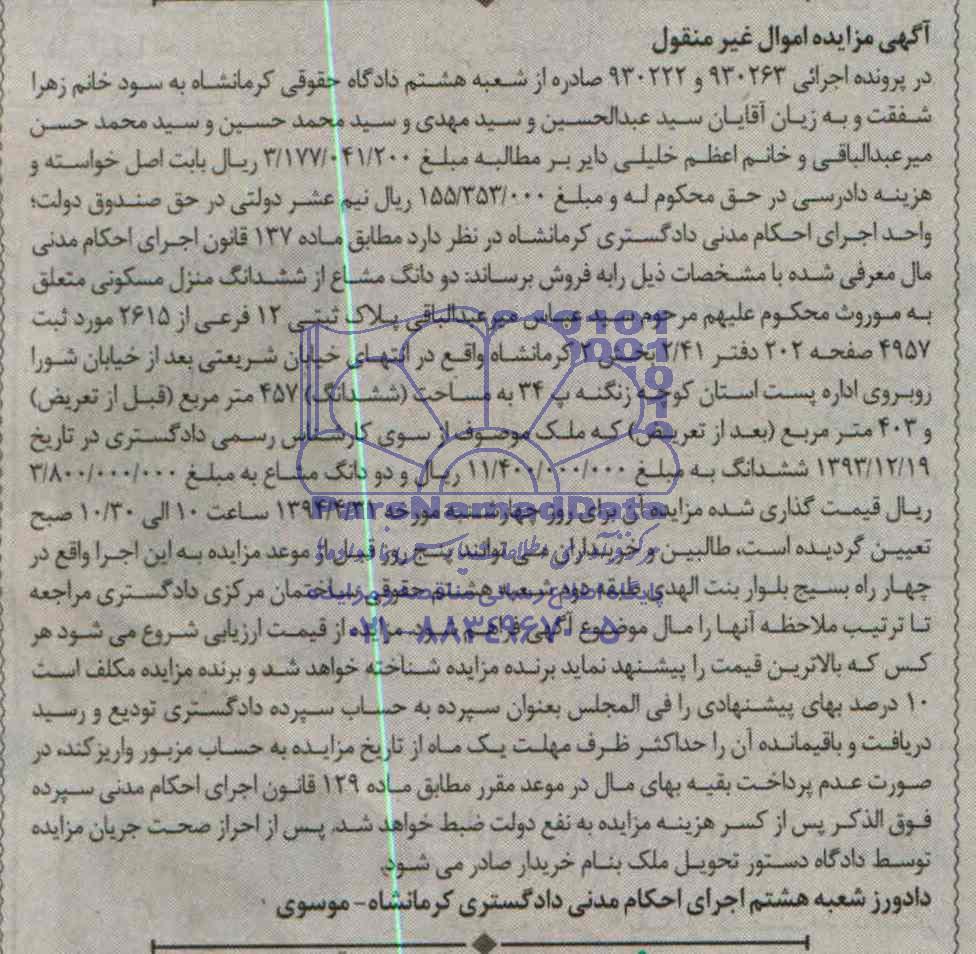 آگهی مزایده اموال غیر منقول
در پرونده اجرائی ۹۳۰۲۶۳ و ۹۳۰۲۲۲ صادره از شعبه هشتم دادگاه حقوقی کرمانشاه به سود خانم زهرا
شفقت و به زیان آقایان سید عبدالحسین و سید مهدی و سید محمد حسین و سید محمد حسن
میرعبدالباقی و خانم اعظم خلیلی دایر بر مطالبه مبلغ ۳/۱۷۷/۰۴۱/۲۰۰ ریال بابت اصل خواسته و
هزینه دادرسی در حق محکوم له و مبلغ ۱۵۵/۳۵۳/۰۰۰ ریال نیم عشر دولتی در حق صندوق دولت؛
واحد اجرای احکام مدنی دادگستری کرمانشاه در نظر دارد مطابق ماده ۱۳۷ قانون اجرای احکام مدنی
مال معرفی شده با مشخصات ذیل رابه فروش برساند: دو دانگ مشاع از ششدانگ منزل مسکونی متعلق
به موروث محکوم علیهم مرحوم سید عباس میرعبدالباقی پلاک ثبتی ۱۲ فرعی از ۲۶۱۵ مورد ثبت
۴۹۵۷ صفحه ۲۰۲ دفتر ۲/۴۱ بخش ۲ کرمانشاه واقع در انتهای خیابان شریعتی بعد از خیابان شورا
روبروی اداره پست استان کوچه زنگنه پ ۳۴ به مساحت (ششدانگ) ۴۵۷ متر مربع (قبل از تعریض)
و ۴۰۳ متر مربع (بعد از تعریض) که ملک موصوف از سوی کارشناس رسمی دادگستری در تاریخ
۱۳۹۳/۱۲/۱۹ ششدانگ به مبلغ ۱۱/۴۰۰/۰۰۰/۰۰۰ ریال و دو دانگ مشاع به مبلغ ۳/۸۰۰/۰۰۰/۰۰۰
ریال قیمت گذاری شده مزایده آن برای روز چهارشنبه مورخه ۱۳۹۴/۴/۳۱ ساعت ۱۰ الی ۱۰/۳۰ صبح
تعیین گردیده است، طالبین و خریداران می توانند پنج روز قبل از موعد مزایده به این اجرا واقع در
چهار راه بسیج بلوار بنت الهدی طبقه دوم شعبه هشتم حقوقی ساختمان مرکزی دادگستری مراجعه
تا ترتیب ملاحظه آنها را مال موضوع آگهی فراهم شود مزایده از قیمت ارزیابی شروع می شود هر
کس که بالاترین قیمت را پیشنهد نماید برنده مزایده شناخته خواهد شد و برنده مزایده مکلف است
۱۰ درصد بهای پیشنهادی را فی المجلس بعنوان سپرده به حساب سپرده دادگستری تودیع و رسید
دریافت و باقیمانده آن را حداکثر ظرف مهلت یک ماه از تاریخ مزایده به حساب مزبور واریز کند، در
صورت عدم پرداخت بقیه بهای مال در موعد مقرر مطابق ماده ۱۲۹ قانون اجرای احکام مدنی سپرده
فوق الذکر پس از کسر هزینه مزایده به نفع دولت ضبط خواهد شد. پس از احراز صحت جریان مزایده
توسط دادگاه دستور تحویل ملک بنام خریدار صادر می شود.
دادورز شعبه هشتم اجرای احکام مدنی دادگستری کرمانشاه - موسوی
ParsNamadData
۰۲۱-۸۸۳۴۹۶۷۰-۵